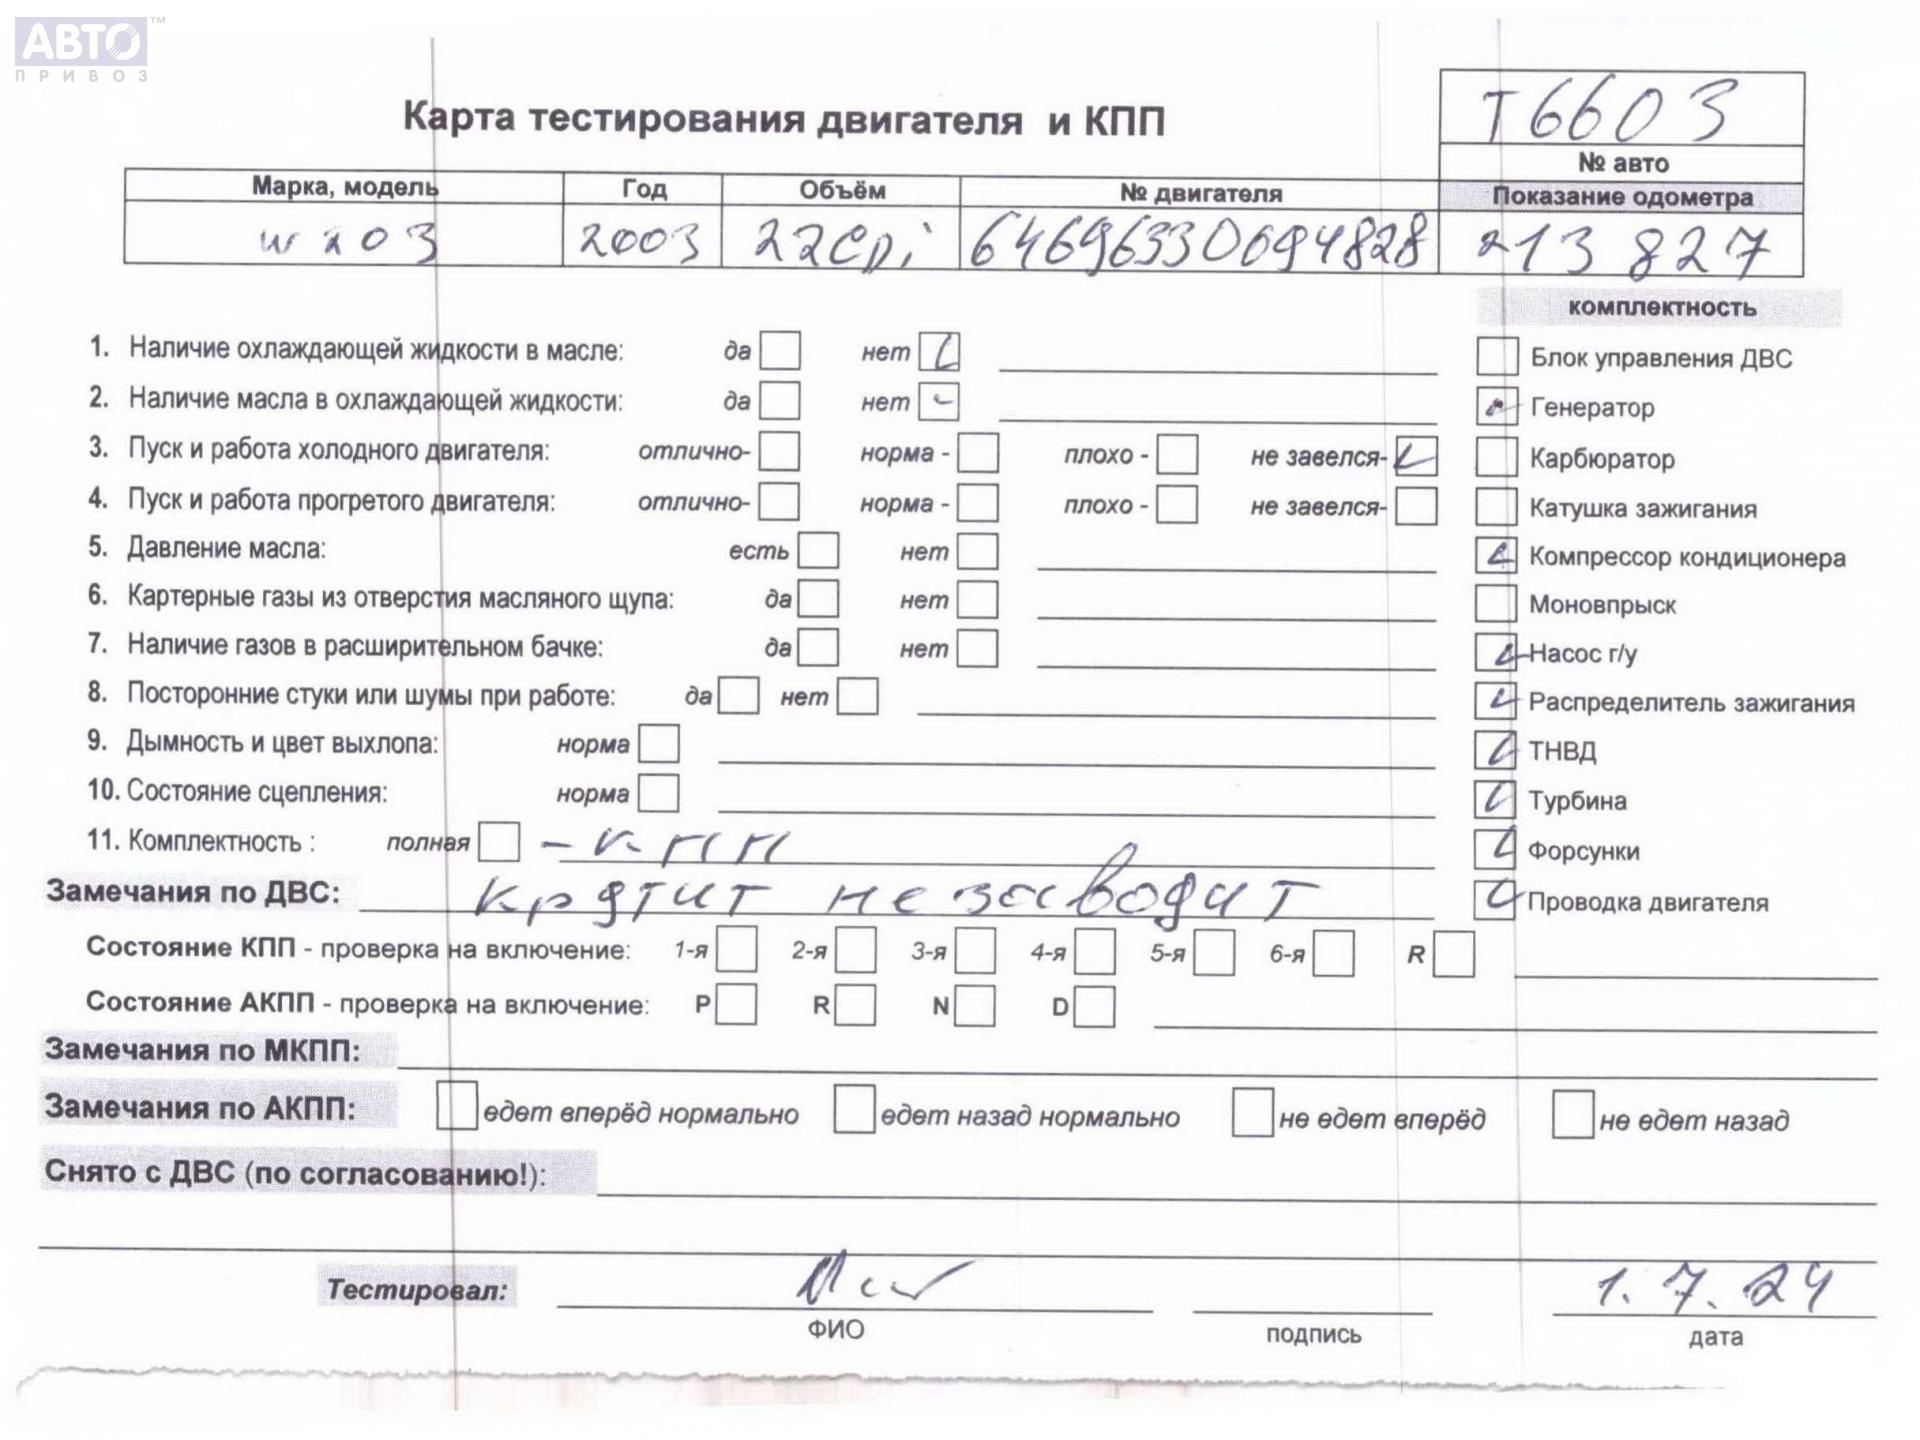 АВТО™
ПРИВОЗ
Карта тестирования двигателя и КПП
Т6603
№ авто
Марка, модель Год Объём № двигателя Показание одометра
w203 2003 22CDi 64696330694828 213 827
комплектность
1. Наличие охлаждающей жидкости в масле: да нет
Блок управления ДВС
2. Наличие масла в охлаждающей жидкости: да нет
Генератор
3. Пуск и работа холодного двигателя: отлично- норма - плохо - не завелся-
Карбюратор
4. Пуск и работа прогретого двигателя: отлично- норма - плохо - не завелся-
Катушка зажигания
5. Давление масла: есть нет
Компрессор кондиционера
6. Картерные газы из отверстия масляного щупа: да нет
Моновпрыск
7. Наличие газов в расширительном бачке: да нет
Насос г/у
8. Посторонние стуки или шумы при работе: да нет
Распределитель зажигания
9. Дымность и цвет выхлопа: норма
ТНВД
10. Состояние сцепления: норма
Турбина
11. Комплектность : полная - кпп
Форсунки
Замечания по ДВС: крутит не заводит
Проводка двигателя
Состояние КПП - проверка на включение: 1-я 2-я 3-я 4-я 5-я 6-я R
Состояние АКПП - проверка на включение: P R N D
Замечания по МКПП:
Замечания по АКПП: едет вперёд нормально едет назад нормально не едет вперёд не едет назад
Снято с ДВС (по согласованию!):
Тестировал: 1.7.24
ФИО подпись дата